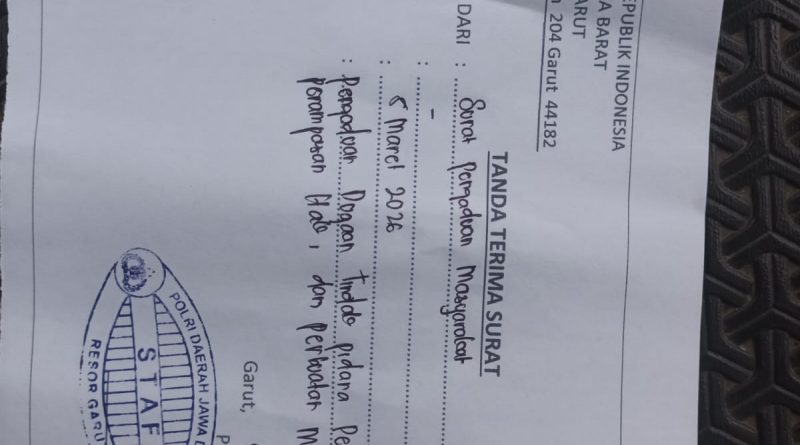 EPUBLIK INDONESIA
A BARAT
ARUT
204 Garut 44182
TANDA TERIMA SURAT
DARI : Surat Pengaduan Masyarakat
: -
: 5 Maret 2026
: Pengaduan Dugaan tindak pidana Pe
perampasan Hak, dan perbuatan M
Garut,
P
POLRI DAERAH JAWA
STAF
RESOR GARU